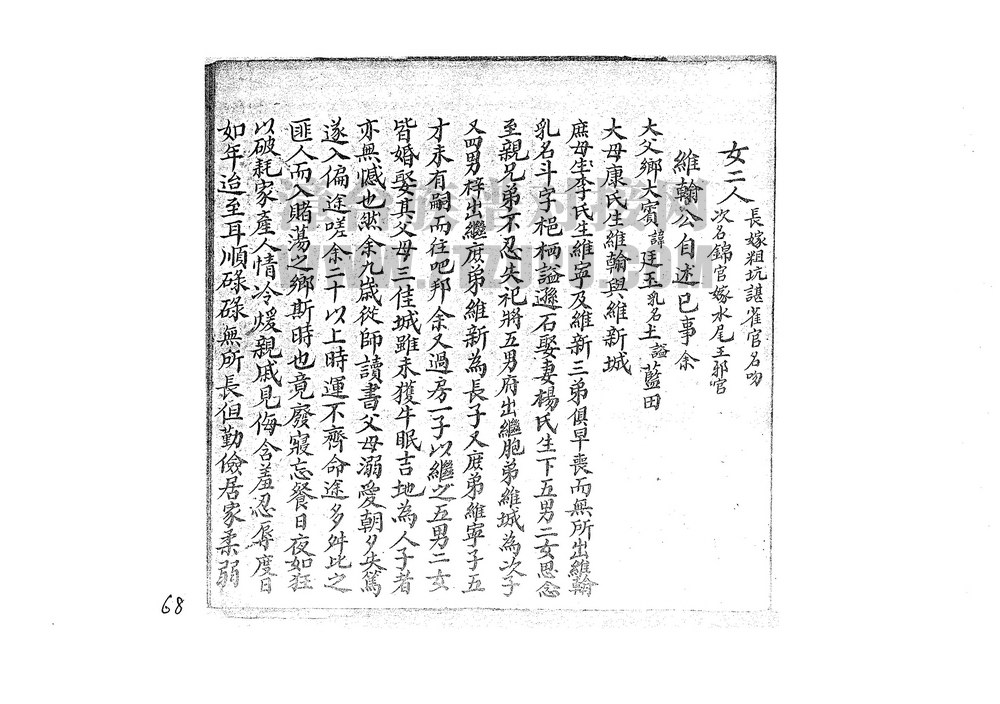 女二人 長嫁粗坑諶雀官名吻
次名錦官嫁水尾王郭官
維翰公自述已事余
大父鄉大賓諱廷玉乳名圡謚藍田
大母康氏生維翰與維新城
庶母李氏生維寧及維新三弟俱早喪而無所出維翰
乳名斗字梔柄謚遜石娶妻楊氏生下五男二女思念
至親兄弟不忍失祀將五男府出繼胞弟維城為次子
又四男梓出繼庶弟維新為長子又庶弟維寧子五
才未有嗣而往吧邦余又過房一子以繼之五男二女
皆婚娶其父母三佳城雖未獲牛眠吉地為人子者
亦無憾也然余九歲從師讀書父母溺愛朝夕失篤
遂入偏途嗟余二十以上時運不齊命途多舛比之
匪人而入賭蕩之鄉斯時也竟廢寢忘餐日夜如狂
以破耗家產人情冷煖親戚見侮含羞忍辱度日
如年迨至耳順碌碌無所長但勤儉居家柔弱
68
WWW.TZUPU.COM